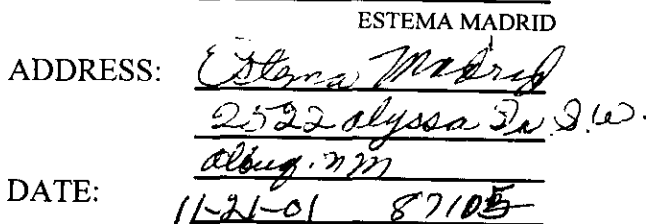 ESTEMA MADRID
ADDRESS: Estema Madrid
2522 Alyssa Dr. S.W.
Albuq. NM
DATE: 11-21-01 87105